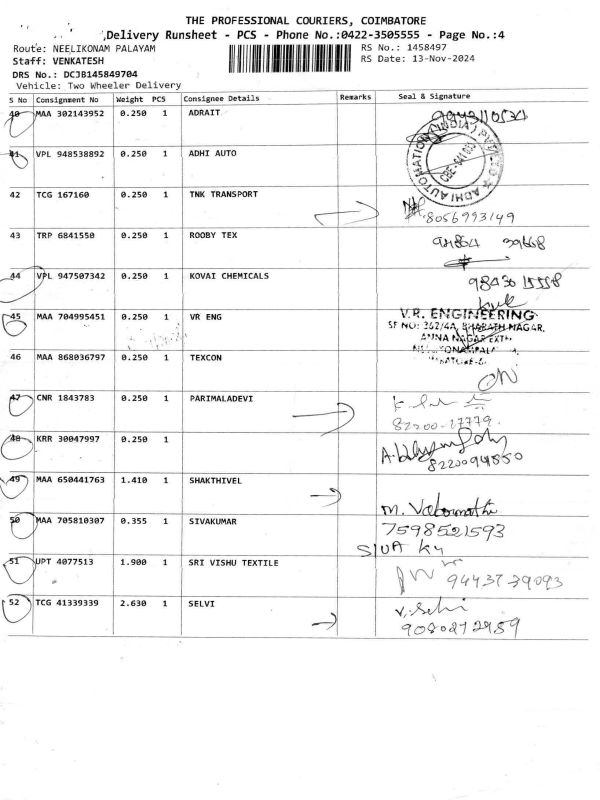 THE PROFESSIONAL COURIERS, COIMBATORE
Delivery Runsheet - PCS - Phone No.:0422-3505555 - Page No.:4
Route: NEELIKONAM PALAYAM
RS No.: 1458497
Staff: VENKATESH
RS Date: 13-Nov-2024
DRS No.: DCJB145849704
Vehicle: Two Wheeler Delivery
S No Consignment No Weight PCS Consignee Details Remarks Seal & Signature
40 MAA 302143952 0.250 1 ADRAIT
41 VPL 948538892 0.250 1 ADHI AUTO
ADHI AUTOMATION (INDIA) PVT LTD
42 TCG 167160 0.250 1 TNK TRANSPORT
8056993149
43 TRP 6841550 0.250 1 ROOBY TEX
44 VPL 947507342 0.250 1 KOVAI CHEMICALS
98430 15558
45 MAA 704995451 0.250 1 VR ENG
V.R. ENGINEERING
SF NO: 362/4A, BHARATH NAGAR,
ANNA NAGAR EXTN
46 MAA 868036797 0.250 1 TEXCON
47 CNR 1843783 0.250 1 PARIMALADEVI
82200-17779
48 KRR 30047997 0.250 1
8220094850
49 MAA 650441763 1.410 1 SHAKTHIVEL
50 MAA 705810307 0.355 1 SIVAKUMAR
7598521593
SIVA KU
51 UPT 4077513 1.900 1 SRI VISHU TEXTILE
94437-39093
52 TCG 41339339 2.630 1 SELVI
V. Selvi
9080272959